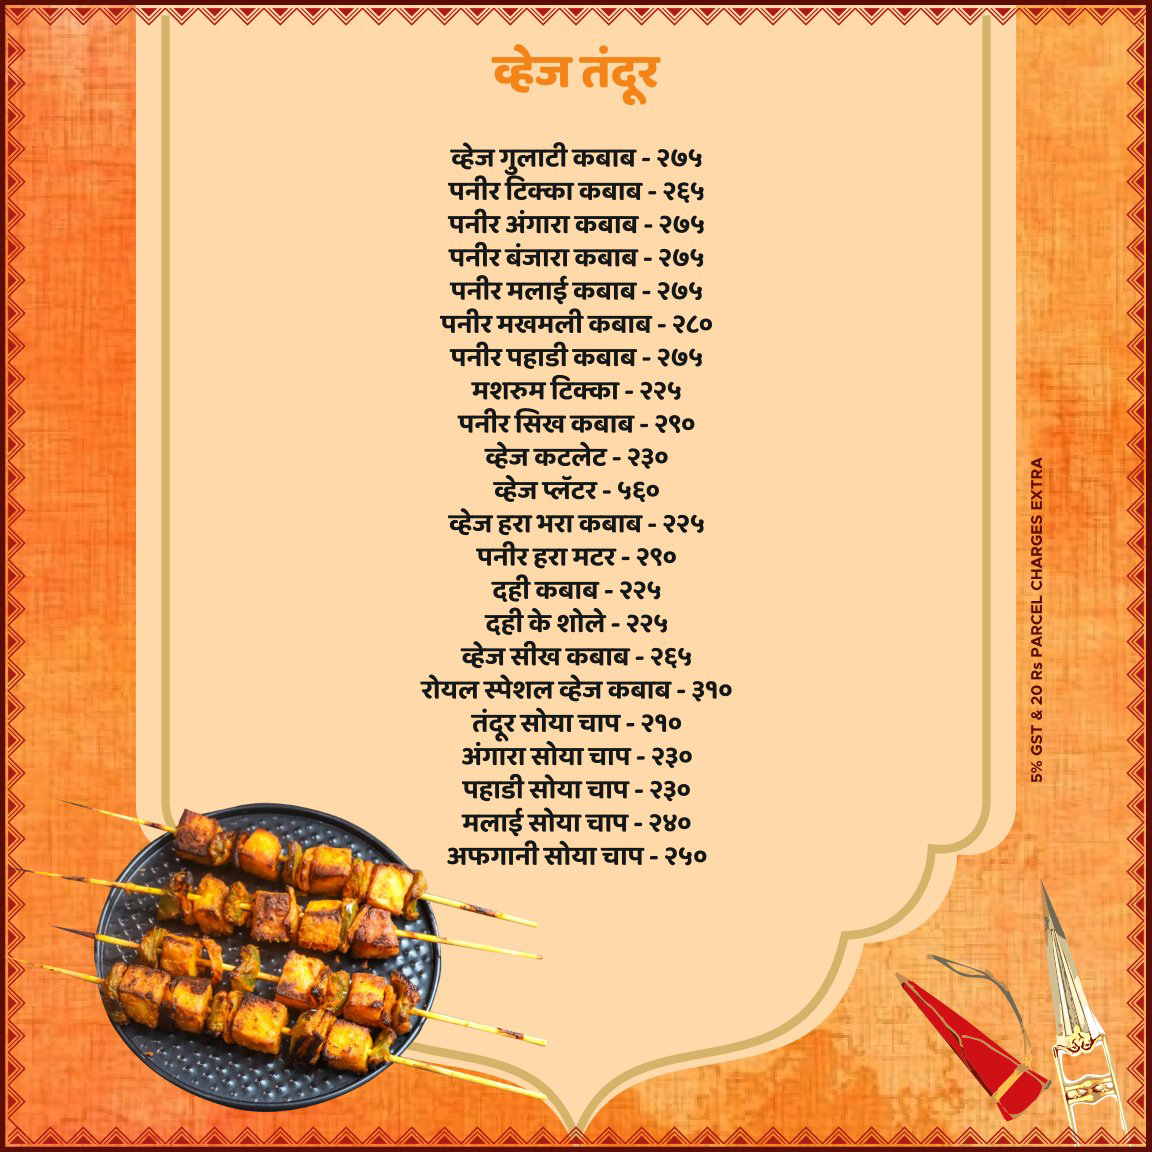 व्हेज तंदूर
व्हेज गुलाटी कबाब - २७५
पनीर टिक्का कबाब - २६५
पनीर अंगारा कबाब - २७५
पनीर बंजारा कबाब - २७५
पनीर मलाई कबाब - २७५
पनीर मखमली कबाब - २८०
पनीर पहाडी कबाब - २७५
मशरुम टिक्का - २२५
पनीर सिख कबाब - २९०
व्हेज कटलेट - २३०
व्हेज प्लॅटर - ५६०
व्हेज हरा भरा कबाब - २२५
पनीर हरा मटर - २९०
दही कबाब - २२५
दही के शोले - २२५
व्हेज सीख कबाब - २६५
रोयल स्पेशल व्हेज कबाब - ३१०
तंदूर सोया चाप - २१०
अंगारा सोया चाप - २३०
पहाडी सोया चाप - २३०
मलाई सोया चाप - २४०
अफगानी सोया चाप - २५०
5% GST & 20 Rs PARCEL CHARGES EXTRA